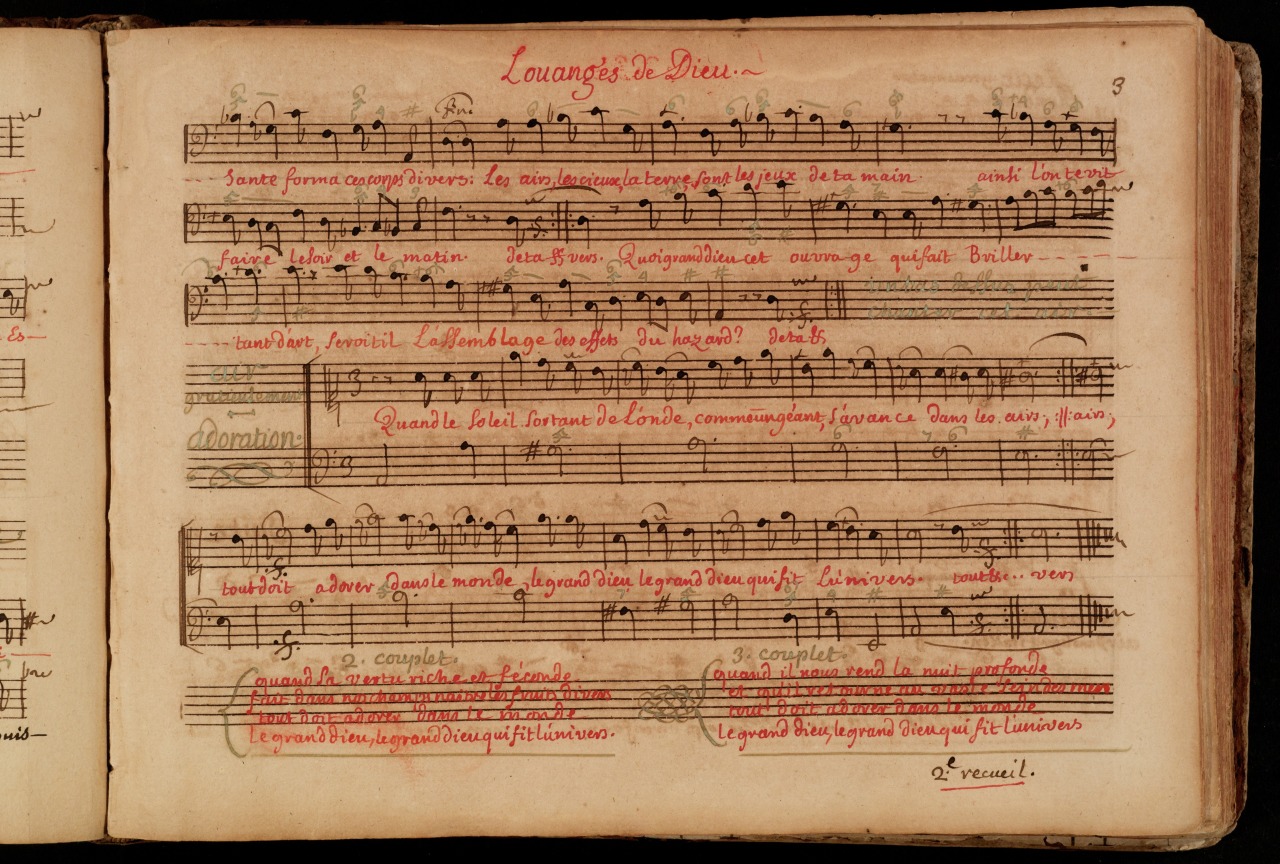 Louanges de Dieu.
3
fin.
sante forma ces corps divers: Les airs, les cieux, la terre, sont les jeux de ta main ainsi l'on te vit
faire le soir et le matin. de ta vers. Quoi grand dieu cet ouvrage qui fait Briller
tant d'art, seroit il L'assemblage des effets du hazard? de ta
air
gracieusement
adoration.
Quand le Soleil sortant de L'onde, comme un géant, s'avance dans les airs; :||: airs;
tout doit adorer dans le monde, le grand dieu le grand dieu qui fit L'univers. tout &c.. vers
2. couplet.
quand sa vertu riche et féconde
fait dans nos champs naitre les fruits divers
tout doit adorer dans le monde
Le grand dieu, le grand dieu qui fit l'univers.
3. couplet.
quand il nous rend la nuit profonde
et qu'il retourne au vaste sein des mers
tout doit adorer dans le monde
Le grand dieu, le grand dieu qui fit l'univers
2.e recueil.
Es-
puis-